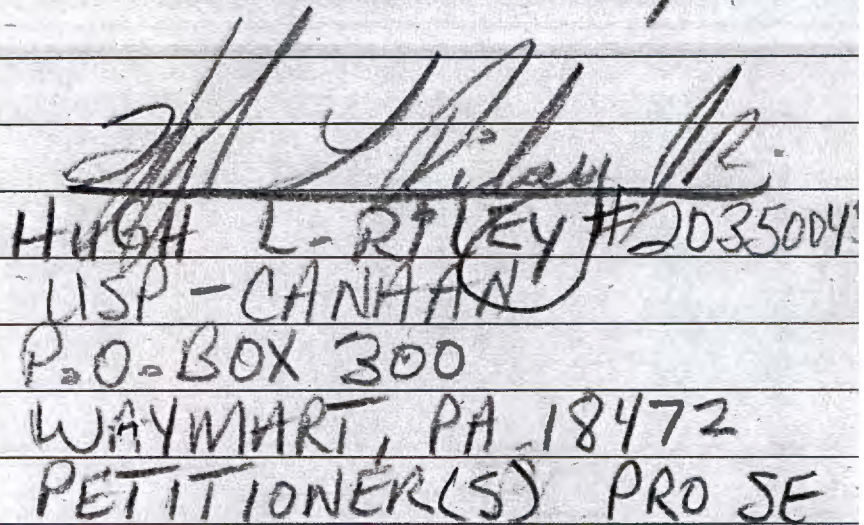 Hugh L Riley Jr.
HUGH L- RILEY #2035004
USP-CANAAN
P.O. BOX 300
WAYMART, PA. 18472
PETITIONER(S) PRO SE